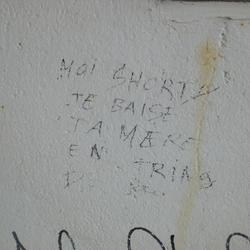 MOI SHORTY
JE BAISE
TA MERE
EN TRING